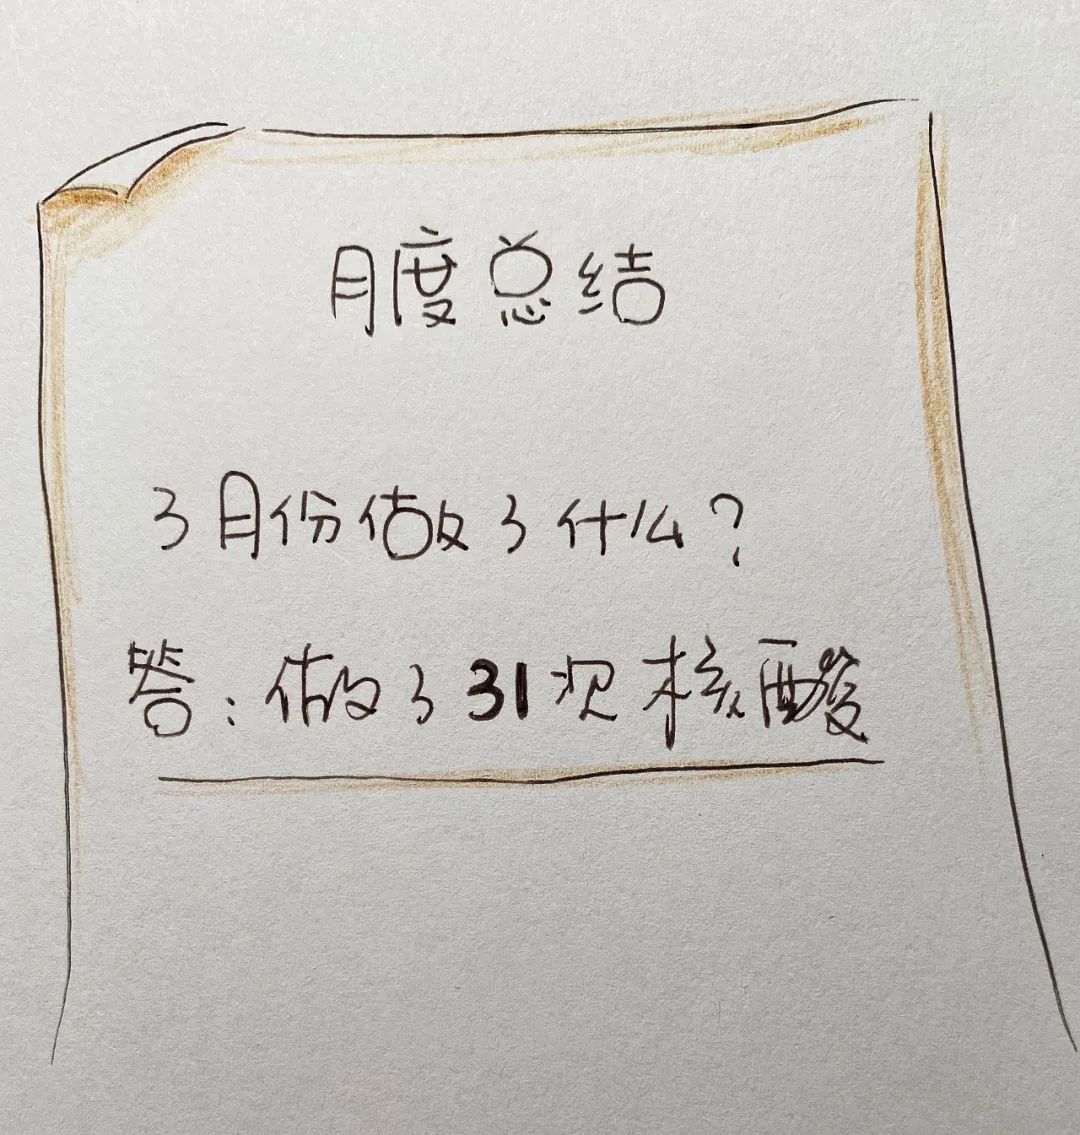 月度总结
3月份做了什么?
答:做了31次核酸